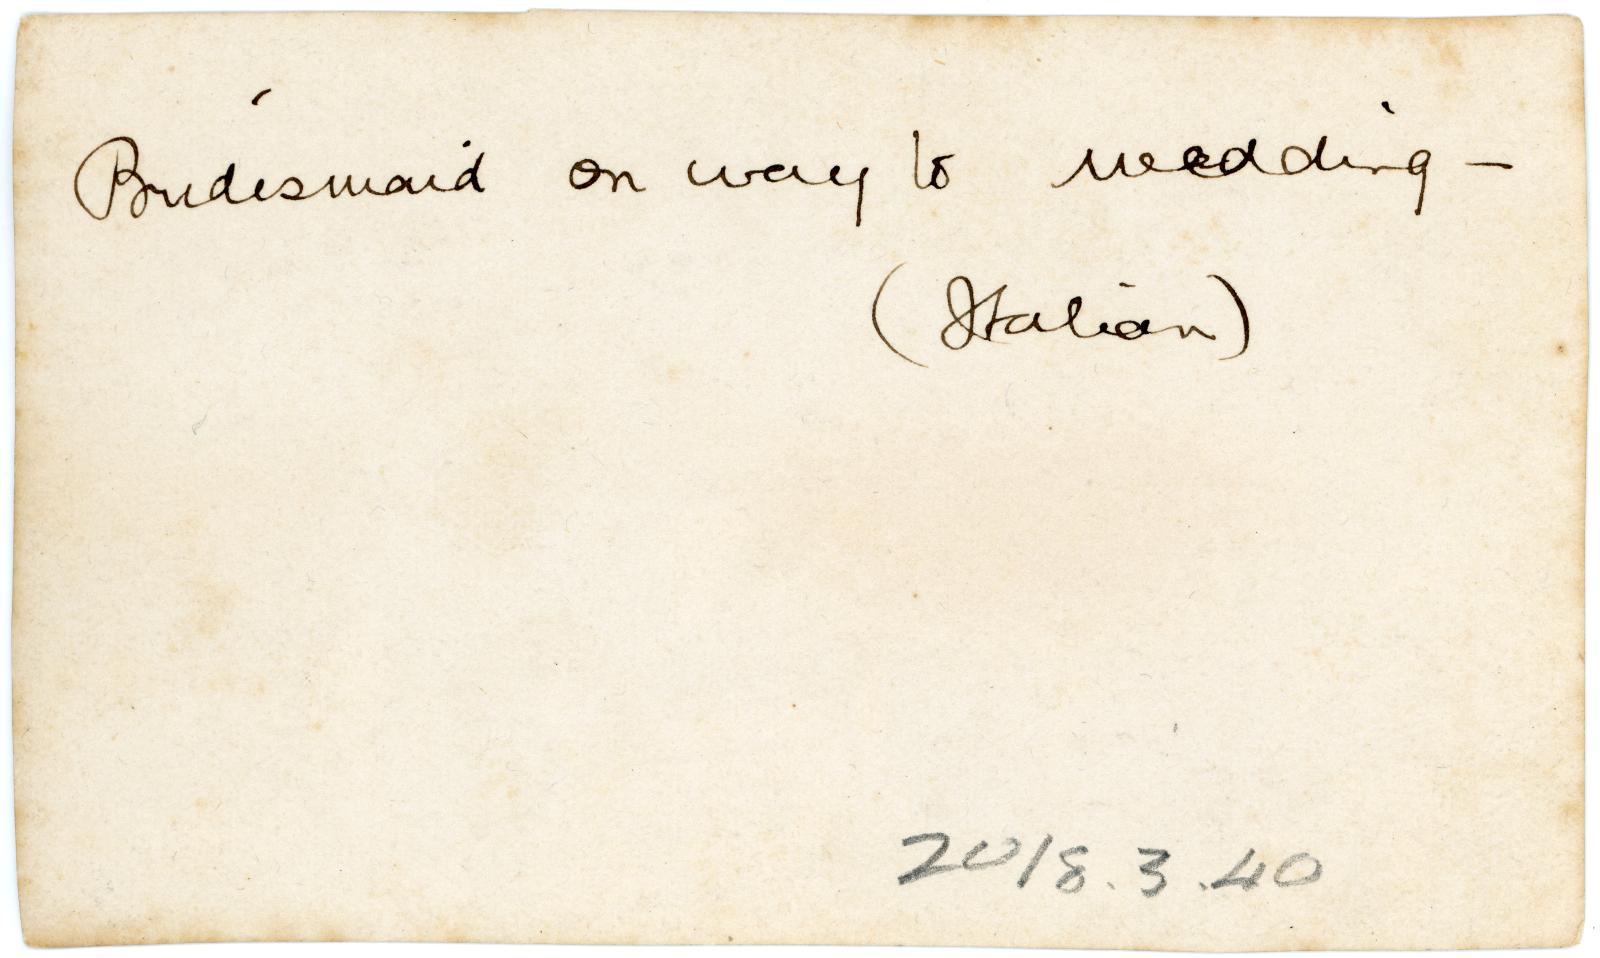 Bridesmaid on way to wedding –
(Italian)
2018.3.40